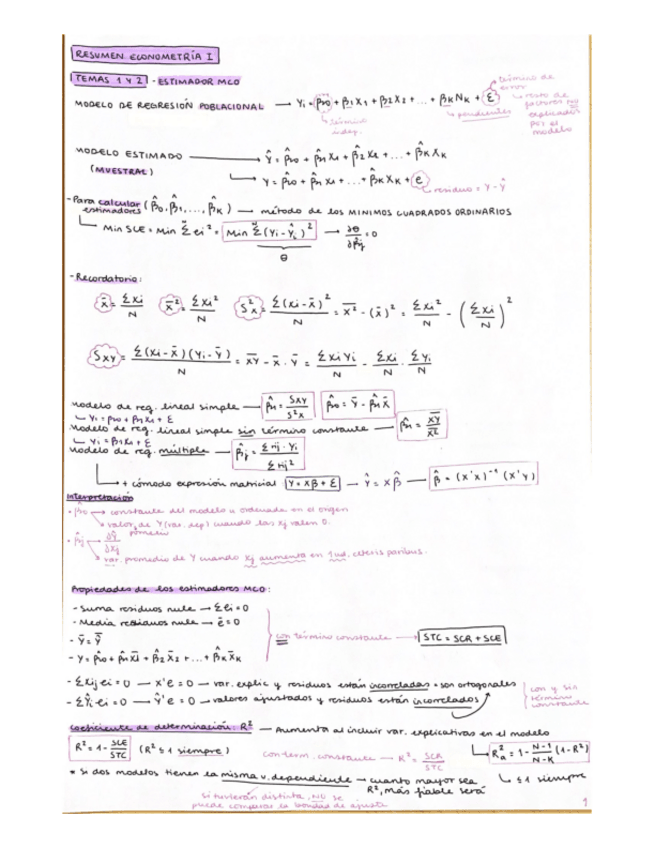 RESUMEN ECONOMETRÍA I
TEMAS 1 Y 2 - ESTIMADOR MCO
MODELO DE REGRESIÓN POBLACIONAL → Yi = β0 + β1X1 + β2X2 + ... + βKXK + ε
término de error
→ resto de factores NO explicados por el modelo
↳ pendientes
término indep.
MODELO ESTIMADO → Ŷ = β̂0 + β̂1X1 + β̂2X2 + ... + β̂KXK
(MUESTRAL) ↳ Y = β̂0 + β̂1X1 + ... + β̂KXK + e
↳ residuo = Y - Ŷ
- Para calcular estimadores (β̂0, β̂1, ..., β̂K) → método de los MINIMOS CUADRADOS ORDINARIOS
↳ Min SCE = Min Σ ei² = Min Σ(Yi - Ŷi)² → ∂θ/∂β̂j = 0
θ
- Recordatorio:
x̄ = Σxi/N   x̄² = Σxi²/N   S²x = Σ(xi - x̄)²/N = x̄² - (x̄)² = Σxi²/N - (Σxi/N)²
Sxy = Σ(xi - x̄)(yi - ȳ)/N = XY - x̄ · ȳ = ΣxiYi/N - Σxi/N · ΣYi/N
Modelo de reg. lineal simple → β̂1 = Sxy/S²x   β̂0 = Ȳ - β̂1X̄
↳ Yi = β0 + β1X1 + ε
Modelo de reg. lineal simple sin término constante → β̂1 = XY/X²
↳ Yi = β1X1 + ε
Modelo de reg. múltiple → β̂j = Σrij · Yi / Σrij²
↳ + cómodo expresión matricial Y = Xβ + ε → Ŷ = Xβ̂ → β̂ = (X'X)⁻¹(X'Y)
Interpretación
• β̂0 → constante del modelo u ordenada en el origen
↘ valor promedio de Y (var. dep) cuando las xj valen 0.
• β̂j → ∂Ŷ/∂xj
↘ var. promedio de Y cuando xj aumenta en 1 ud, céteris paribus.
Propiedades de los estimadores MCO:
- Suma residuos nula → Σei = 0
- Media residuos nula → ē = 0
- Ȳ = Ŷ
- Y = β̂0 + β̂1X̄1 + β̂2X̄2 + ... + β̂KX̄K
con término constante → STC = SCR + SCE
- Σxijei = 0 → X'e = 0 → var. explic y residuos están incorreladas = son ortogonales
- ΣŶiei = 0 → Ŷ'e = 0 → valores ajustados y residuos están incorrelados
con y sin término constante
Coeficiente de determinación: R² → Aumenta al incluir var. explicativas en el modelo
R² = 1 - SCE/STC (R² ≤ 1 siempre)   con term. constante → R² = SCR/STC   ↳ R²a = 1 - N-1/N-K (1 - R²)
↳ ≤ 1 siempre
* si dos modelos tienen la misma v. dependiente → cuanto mayor sea R², más fiable será
si tuvieran distinta, NO se puede comparar la bondad de ajuste
1